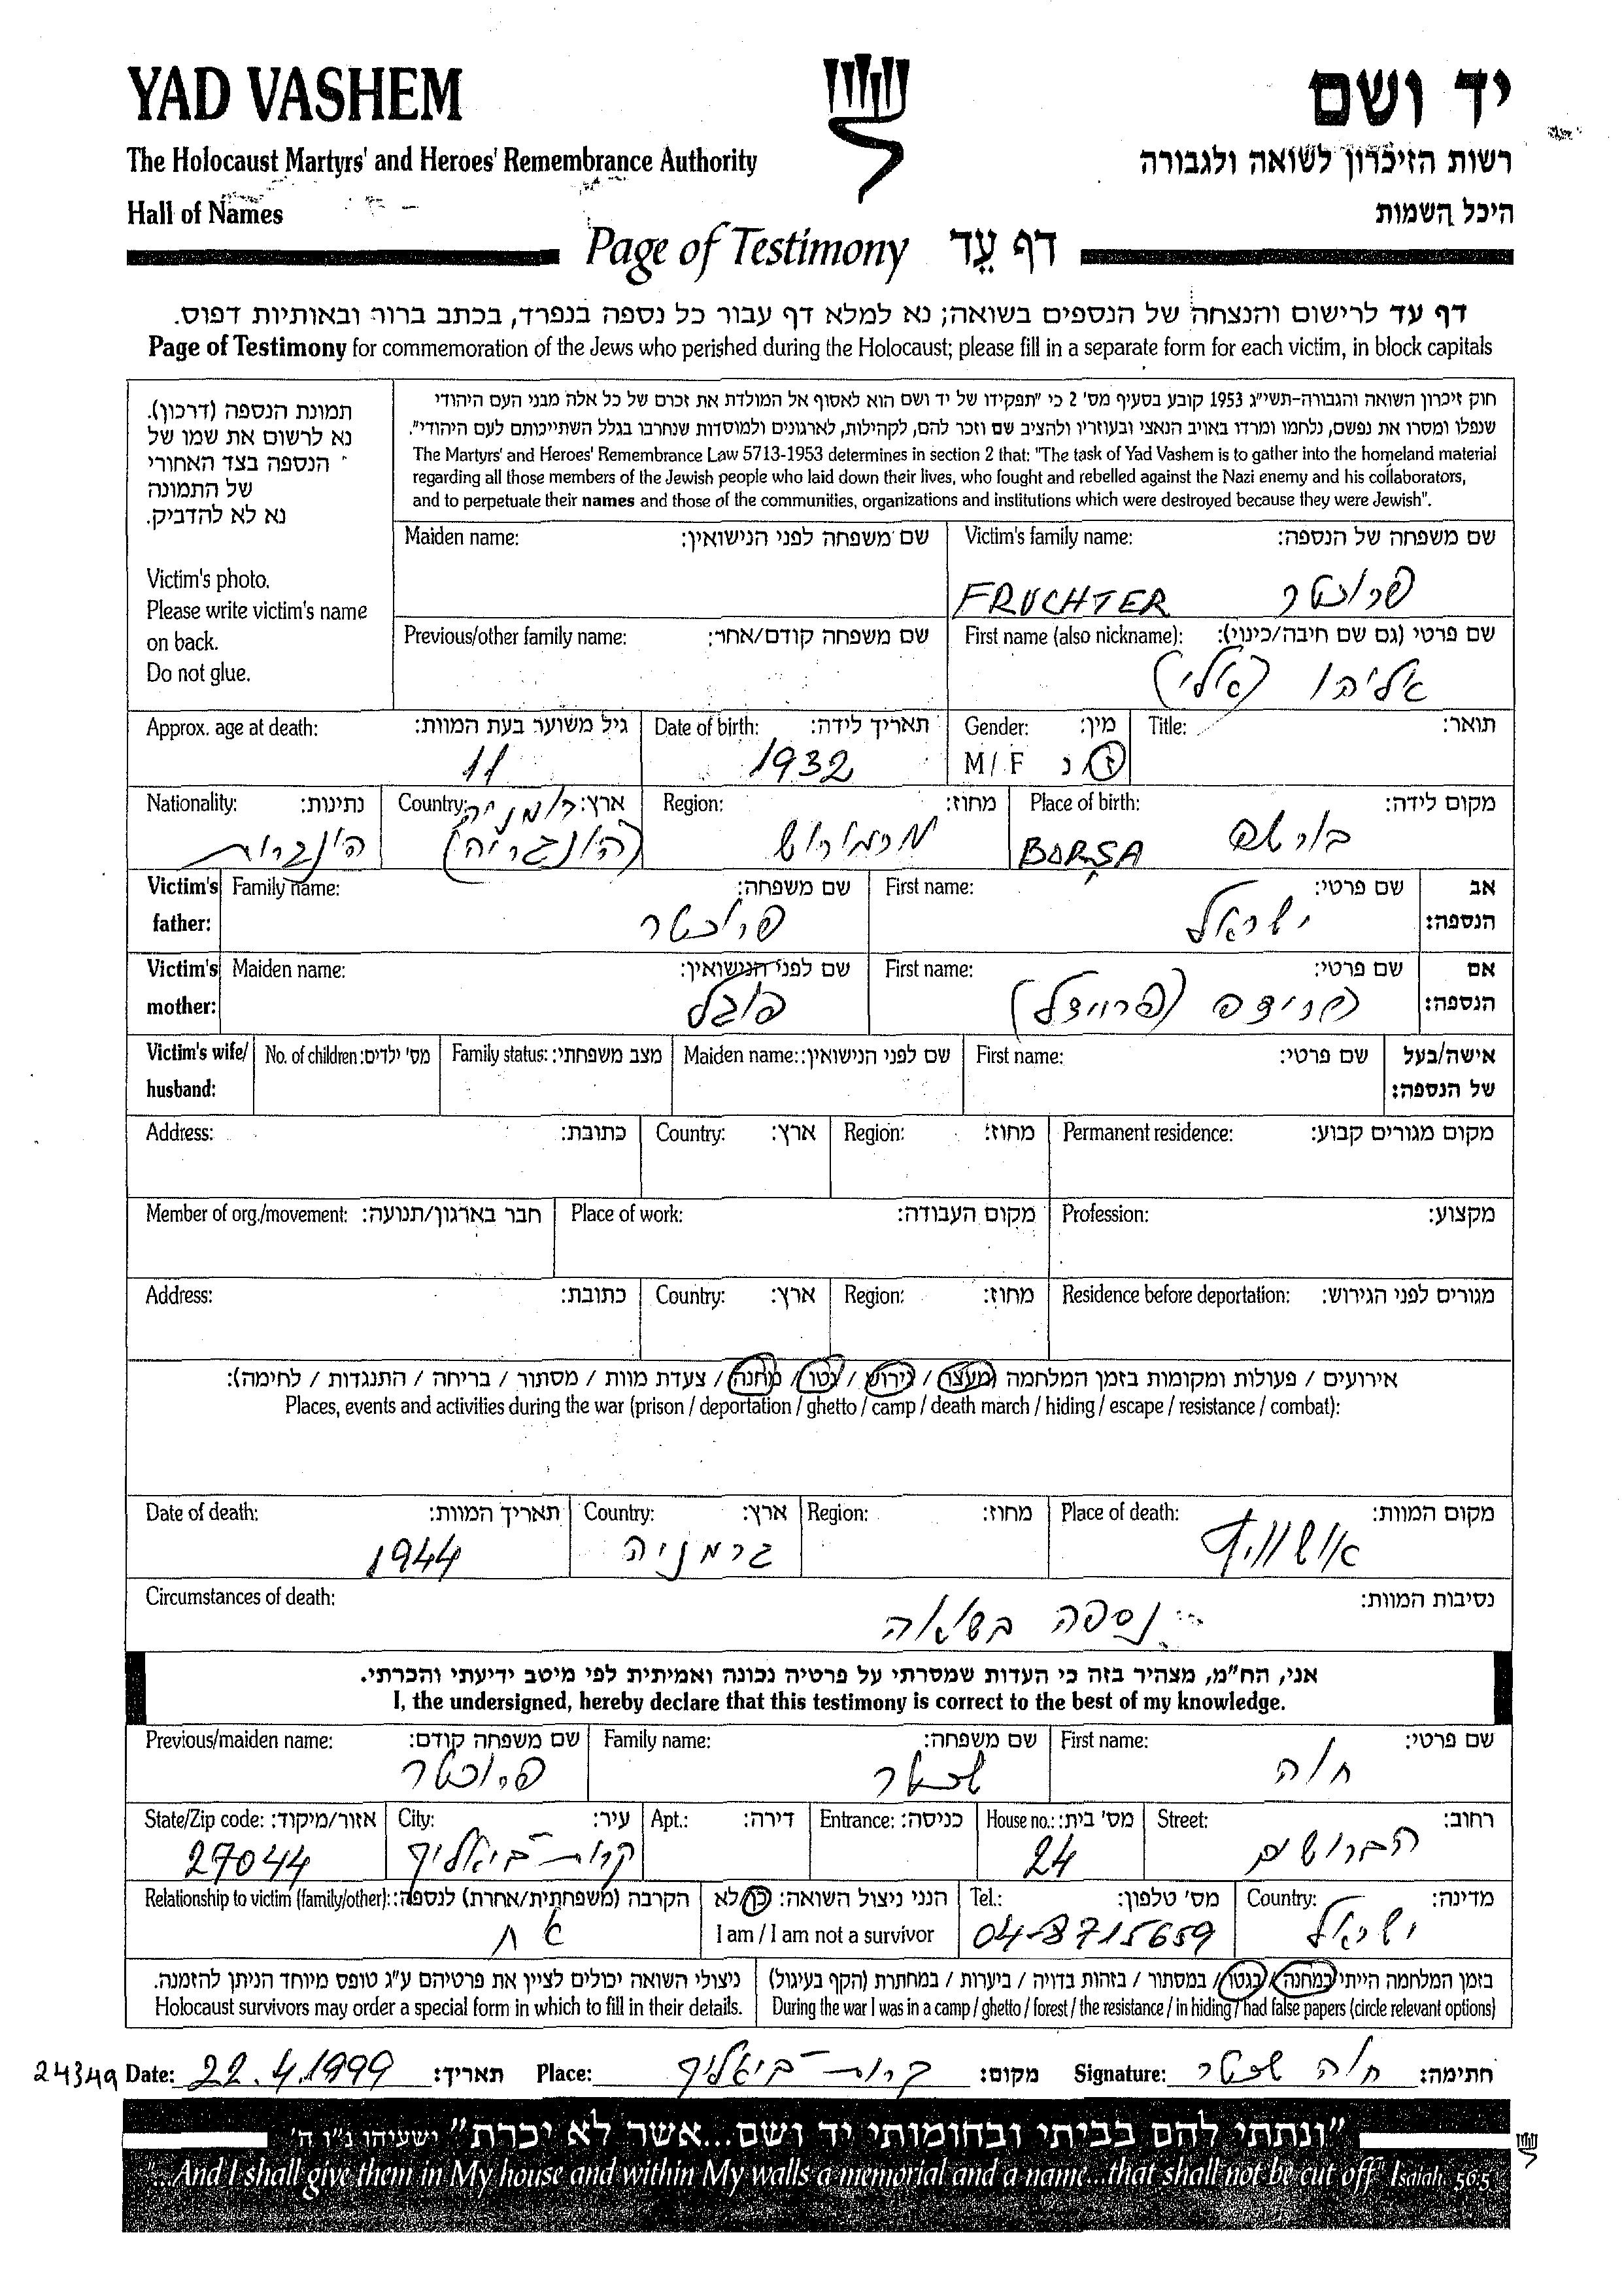 YAD VASHEM
יד ושם
The Holocaust Martyrs' and Heroes' Remembrance Authority
רשות הזיכרון לשואה ולגבורה
Hall of Names
היכל השמות
Page of Testimony דף עֵד
דף עד לרישום והנצחה של הנספים בשואה; נא למלא דף עבור כל נספה בנפרד, בכתב ברור ובאותיות דפוס.
Page of Testimony for commemoration of the Jews who perished during the Holocaust; please fill in a separate form for each victim, in block capitals
תמונת הנספה (דרכון).
נא לרשום את שמו של
הנספה בצד האחורי
של התמונה
נא לא להדביק.
Victim's photo.
Please write victim's name
on back.
Do not glue.
חוק זיכרון השואה והגבורה-תשי״ג 1953 קובע בסעיף מס' 2 כי "תפקידו של יד ושם הוא לאסוף אל המולדת את זכרם של כל אלה מבני העם היהודי
שנפלו ומסרו את נפשם, נלחמו ומרדו באויב הנאצי ובעוזריו ולהציב שם וזכר להם, לקהילות, לארגונים ולמוסדות שנחרבו בגלל השתייכותם לעם היהודי".
The Martyrs' and Heroes' Remembrance Law 5713-1953 determines in section 2 that: "The task of Yad Vashem is to gather into the homeland material
regarding all those members of the Jewish people who laid down their lives, who fought and rebelled against the Nazi enemy and his collaborators,
and to perpetuate their names and those of the communities, organizations and institutions which were destroyed because they were Jewish".
Maiden name: שם משפחה לפני הנישואין:
Victim's family name: שם משפחה של הנספה:
FRUCHTER פרוכטר
Previous/other family name: שם משפחה קודם/אחר:
First name (also nickname): שם פרטי (גם שם חיבה/כינוי):
אליהו (אלי)
Approx. age at death: גיל משוער בעת המוות:
11
Date of birth: תאריך לידה:
1932
Gender: מין:
M / F ז / נ
Title: תואר:
Nationality: נתינות:
הונגרית
Country: ארץ: רומניה
(הונגריה)
Region: מחוז:
מרמורוש
Place of birth: מקום לידה:
BORSA בורשה
Victim's father: Family name: שם משפחה:
פרוכטר
First name: שם פרטי:
ישראל
אב הנספה:
Victim's mother: Maiden name: שם לפני הנישואין:
פוגל
First name: שם פרטי:
פרידה (פריידל)
אם הנספה:
Victim's wife/ husband: No. of children: מס' ילדים: Family status: מצב משפחתי: Maiden name: שם לפני הנישואין: First name: שם פרטי: אישה/בעל של הנספה:
Address: כתובת: Country: ארץ: Region: מחוז: Permanent residence: מקום מגורים קבוע:
Member of org./movement: חבר בארגון/תנועה: Place of work: מקום העבודה: Profession: מקצוע:
Address: כתובת: Country: ארץ: Region: מחוז: Residence before deportation: מגורים לפני הגירוש:
אירועים / פעולות ומקומות בזמן המלחמה (מעצר / גירוש / גטו / מחנה / צעדת מוות / מסתור / בריחה / התנגדות / לחימה):
Places, events and activities during the war (prison / deportation / ghetto / camp / death march / hiding / escape / resistance / combat):
Date of death: תאריך המוות:
1944
Country: ארץ:
גרמניה
Region: מחוז:
Place of death: מקום המוות:
אושוויץ
Circumstances of death: נסיבות המוות:
נספה בשואה
אני, הח״מ, מצהיר בזה כי העדות שמסרתי על פרטיה נכונה ואמיתית לפי מיטב ידיעתי והכרתי.
I, the undersigned, hereby declare that this testimony is correct to the best of my knowledge.
Previous/maiden name: שם משפחה קודם:
פרוכטר
Family name: שם משפחה:
שכטר
First name: שם פרטי:
חוה
State/Zip code: אזור/מיקוד:
27044
City: עיר:
קרית-ביאליק
Apt.: דירה: Entrance: כניסה:
House no.: מס' בית:
24
Street: רחוב:
הברושים
Relationship to victim (family/other): הקרבה (משפחתית/אחרת) לנספה:
אח
הנני ניצול השואה: כן/לא
I am / I am not a survivor
Tel.: מס' טלפון:
04-8715659
Country: מדינה:
ישראל
ניצולי השואה יכולים לציין את פרטיהם ע״ג טופס מיוחד הניתן להזמנה.
Holocaust survivors may order a special form in which to fill in their details.
בזמן המלחמה הייתי במחנה / בגטו / במסתור / בזהות בדויה / ביערות / במחתרת (הקף בעיגול)
During the war I was in a camp / ghetto / forest / the resistance / in hiding / had false papers (circle relevant options)
24349 Date: 22.4.1999 תאריך: Place: קרית-ביאליק מקום: Signature: חוה שכטר חתימה:
"ונתתי להם בביתי ובחומותי יד ושם...אשר לא יכרת" ישעיהו נ״ו ה'
"...And I shall give them in My house and within My walls a memorial and a name...that shall not be cut off" Isaiah. 56:5